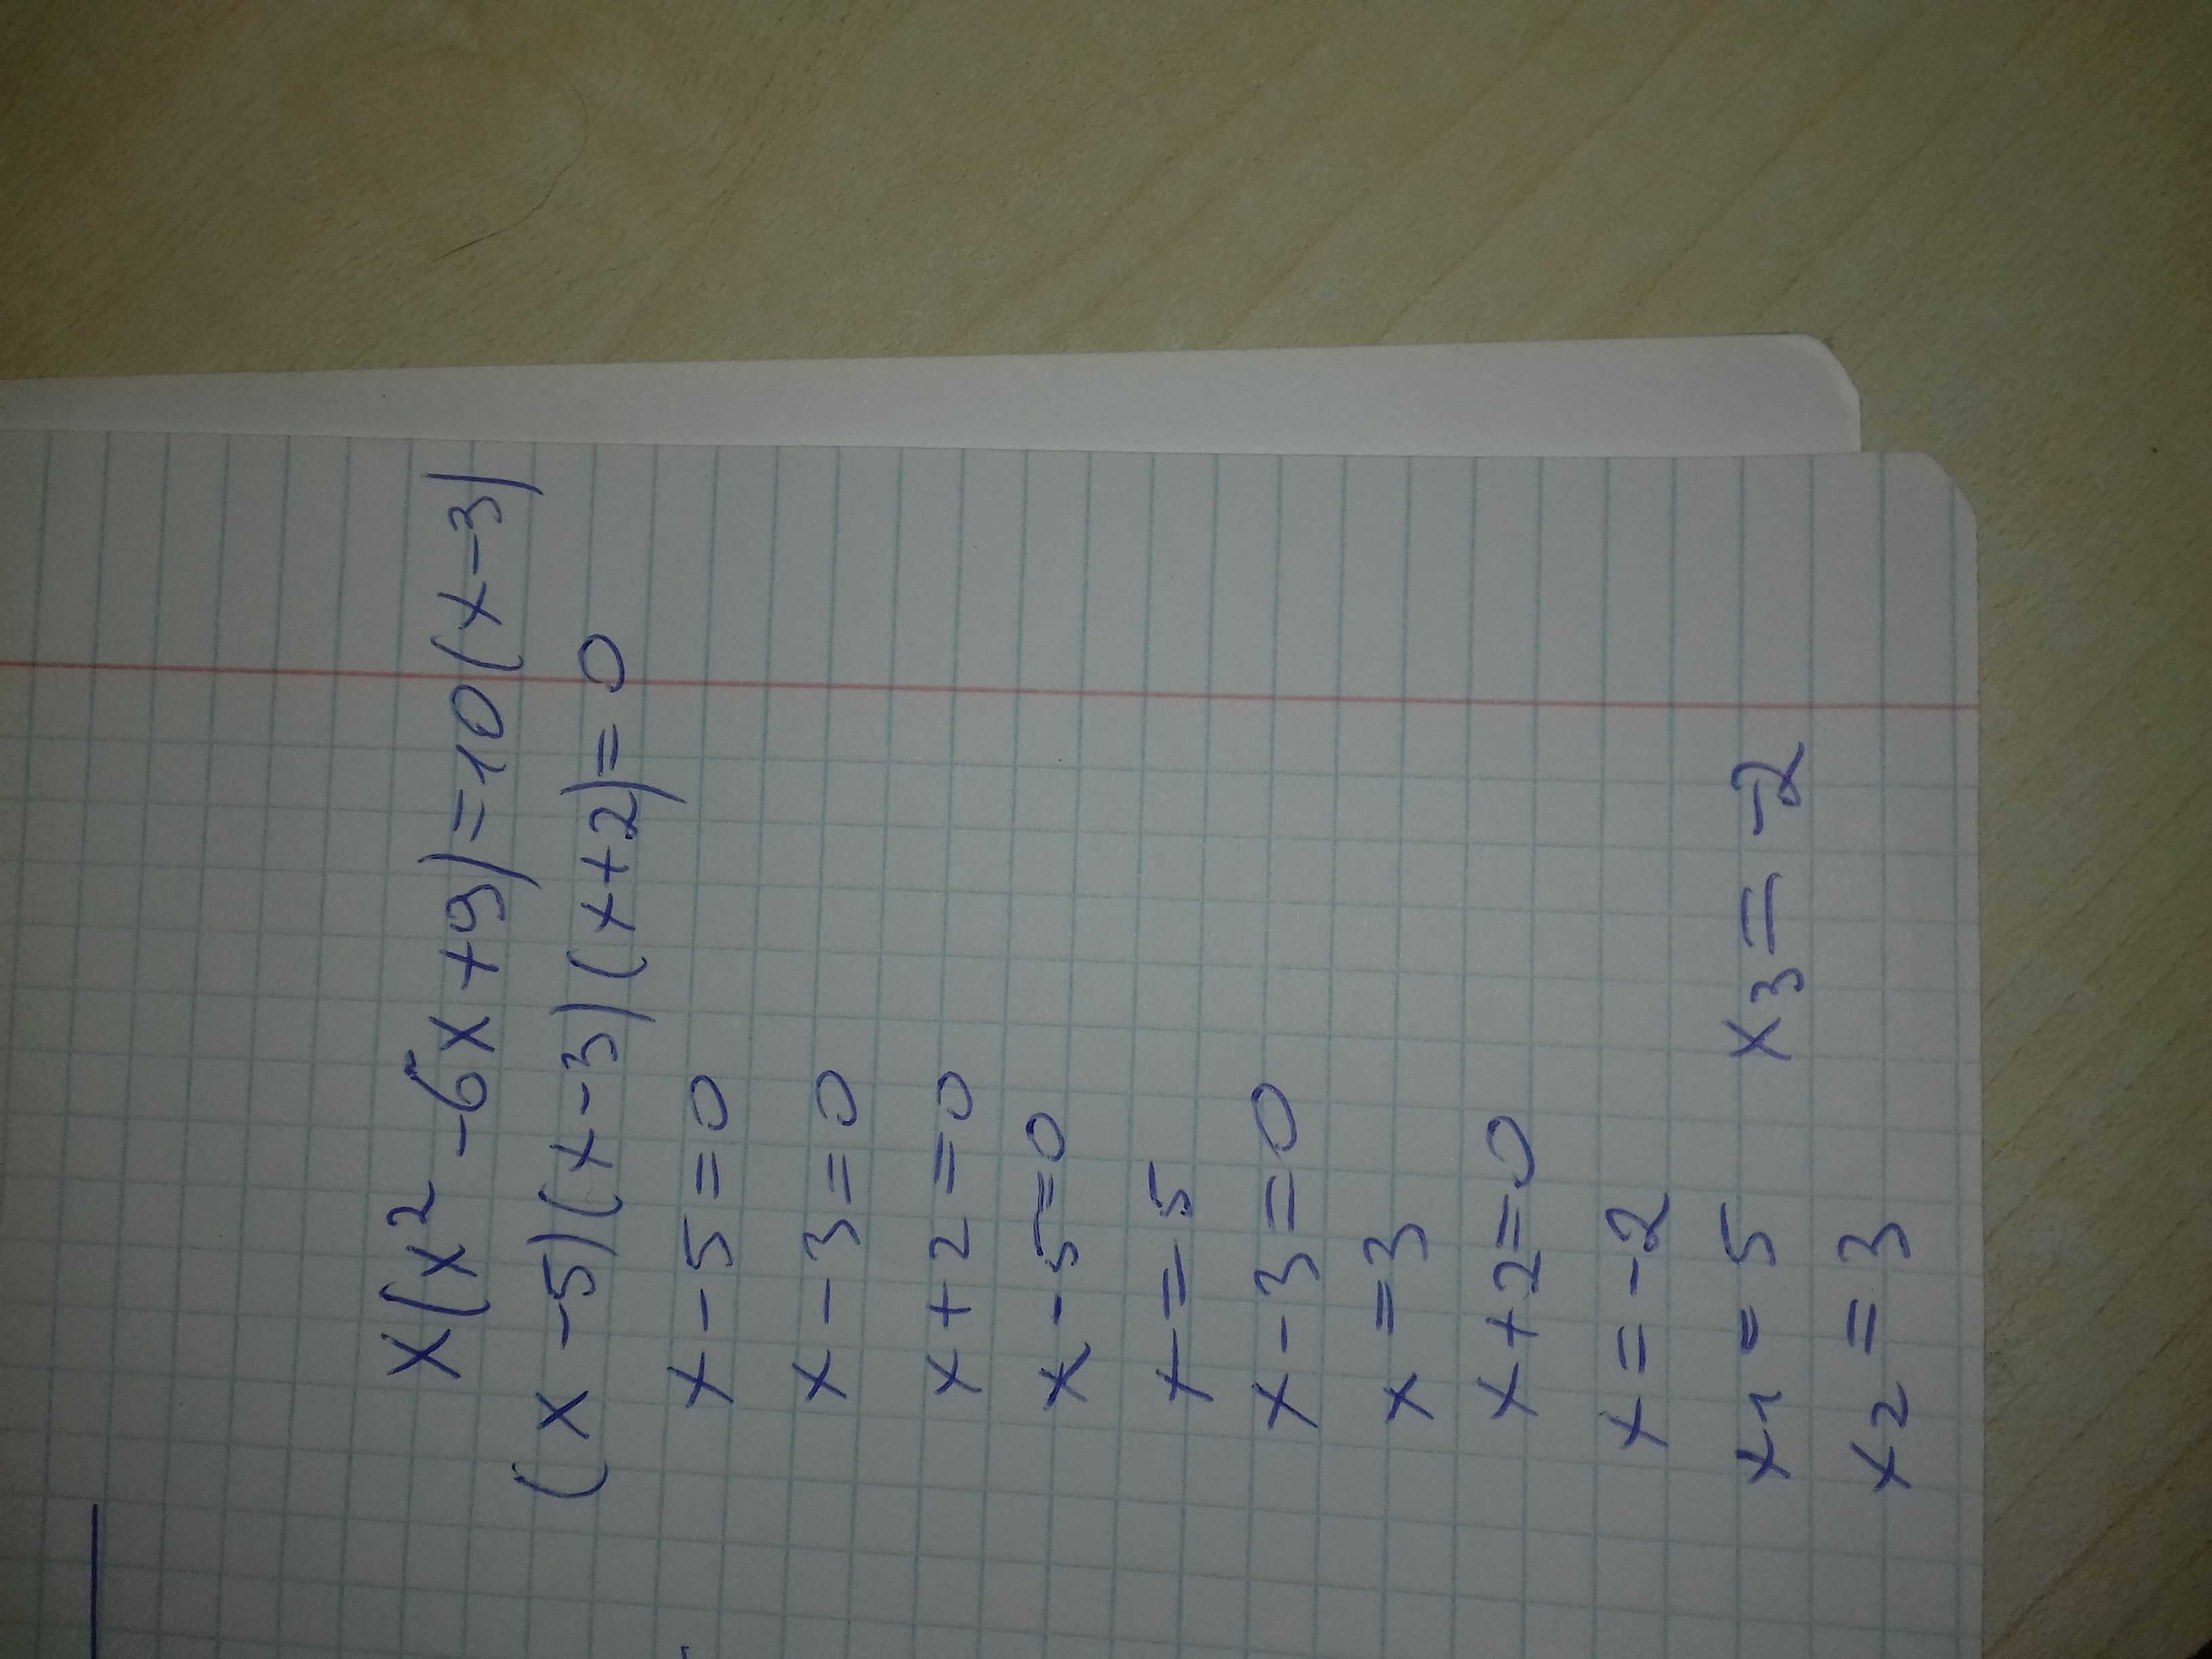 x(x²-6x+9)=10(x-3)
(x-5)(x-3)(x+2)=0
x-5=0
x-3=0
x+2=0
x-5=0
x=5
x-3=0
x=3
x+2=0
x=-2
x₁=5 x₃=-2
x₂=3